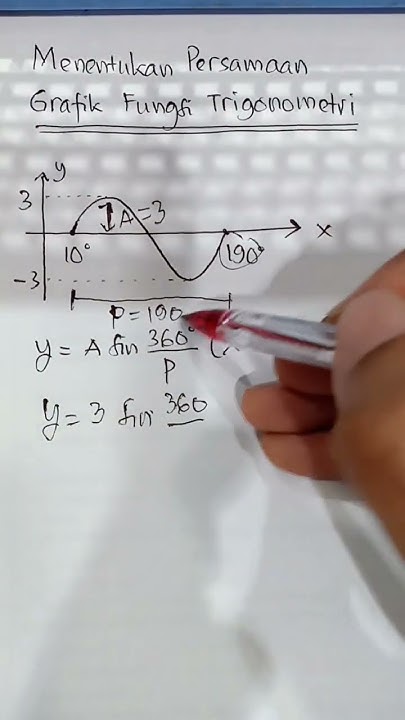 Menentukan Persamaan
Grafik Fungsi Trigonometri
y
3
A=3
x
10°
190°
-3
P = 190
y = A sin 360° (
P
y = 3 sin 360